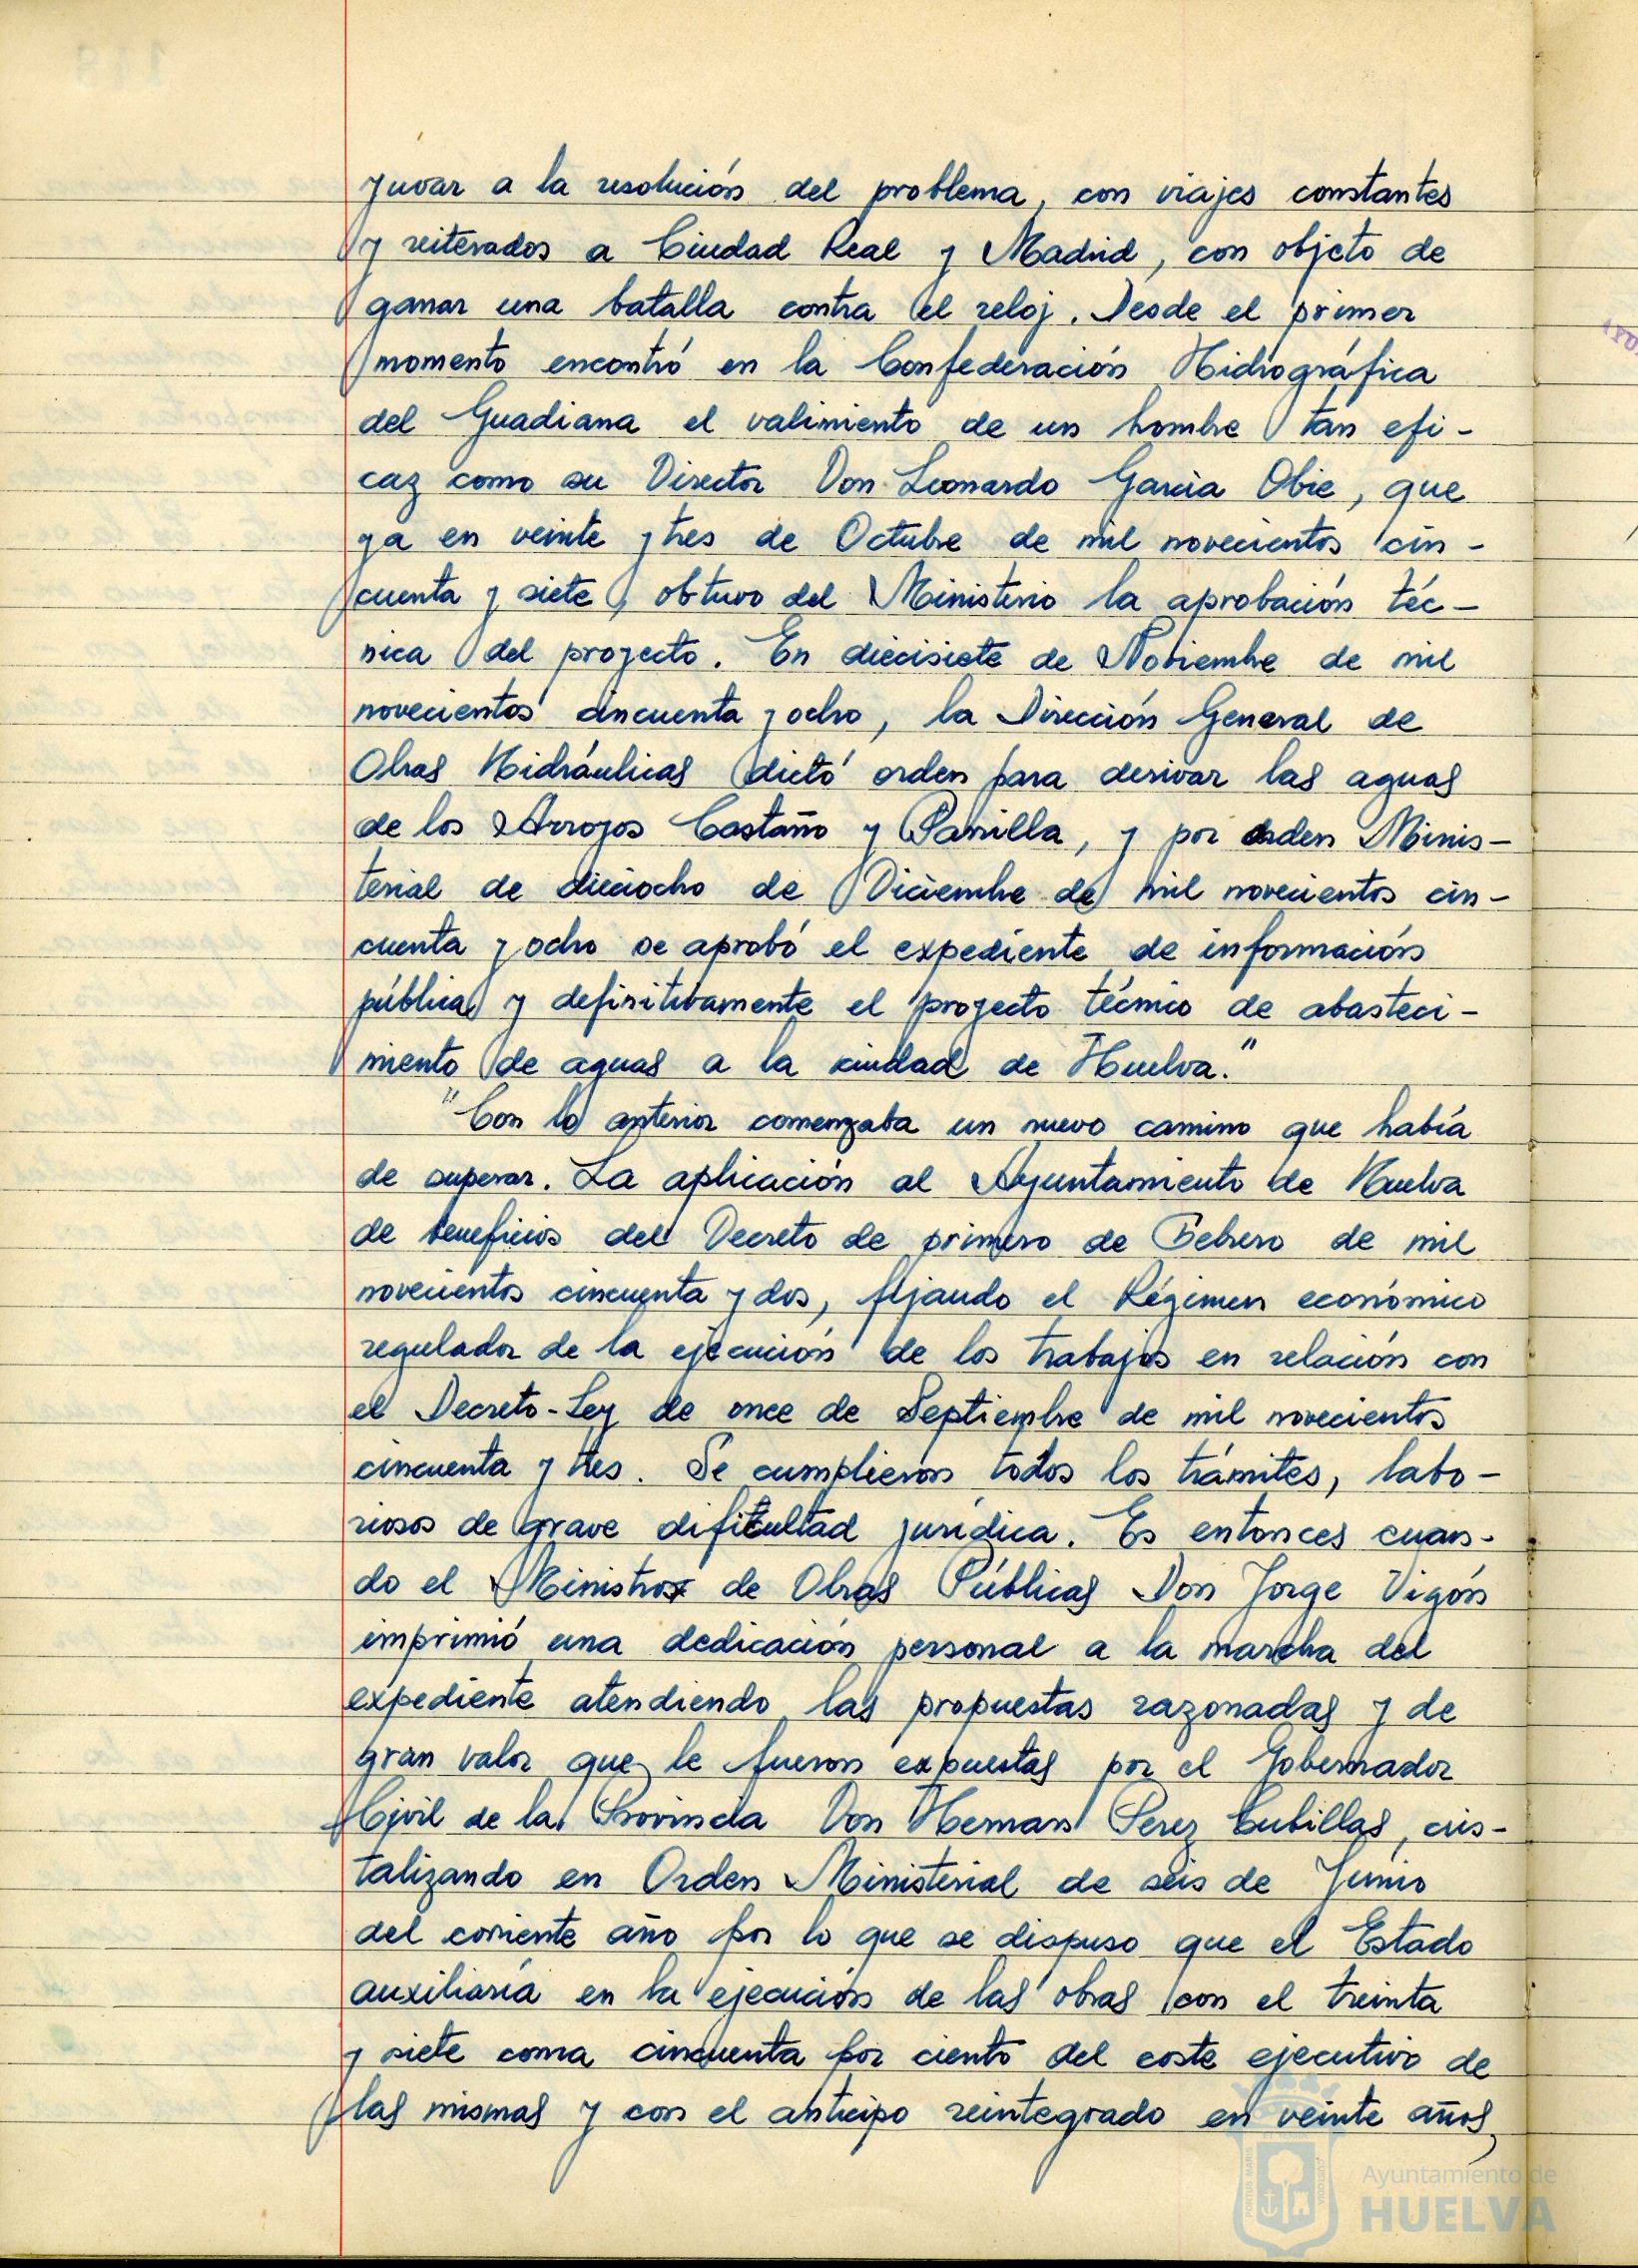 yuvar a la resolución del problema, con viajes constantes
y reiterados a Ciudad Real y Madrid, con objeto de
ganar una batalla contra el reloj. Desde el primer
momento encontró en la Confederación Hidrográfica
del Guadiana el valimiento de un hombre tan efi-
caz como su Director Don Leonardo García Obie, que
ya en veinte y tres de Octubre de mil novecientos cin-
cuenta y siete, obtuvo del Ministerio la aprobación téc-
nica del proyecto. En diecisiete de Noviembre de mil
novecientos cincuenta y ocho, la Dirección General de
Obras Hidráulicas dictó orden para derivar las aguas
de los Arroyos Castaño y Panilla, y por orden Minis-
terial de dieciocho de Diciembre de mil novecientos cin-
cuenta y ocho se aprobó el expediente de información
pública y definitivamente el proyecto técnico de abasteci-
miento de aguas a la ciudad de Huelva."
"Con lo anterior comenzaba un nuevo camino que había
de superar. La aplicación al Ayuntamiento de Huelva
de beneficios del Decreto de primero de Febrero de mil
novecientos cincuenta y dos, fijando el Régimen económico
regulador de la ejecución de los trabajos en relación con
el Decreto-Ley de once de Septiembre de mil novecientos
cincuenta y tres. Se cumplieron todos los trámites, labo-
riosos de grave dificultad jurídica. Es entonces cuan-
do el Ministro de Obras Públicas Don Jorge Vigón
imprimió una dedicación personal a la marcha del
expediente atendiendo las propuestas razonadas y de
gran valor que le fueron expuestas por el Gobernador
Civil de la Provincia Don Hernan Perez Cubillas, cris-
talizando en Orden Ministerial de seis de Junio
del corriente año por lo que se dispuso que el Estado
auxiliaría en la ejecución de las obras con el treinta
y siete coma cincuenta por ciento del coste ejecutivo de
las mismas y con el anticipo reintegrado en veinte años,
Ayuntamiento de
HUELVA